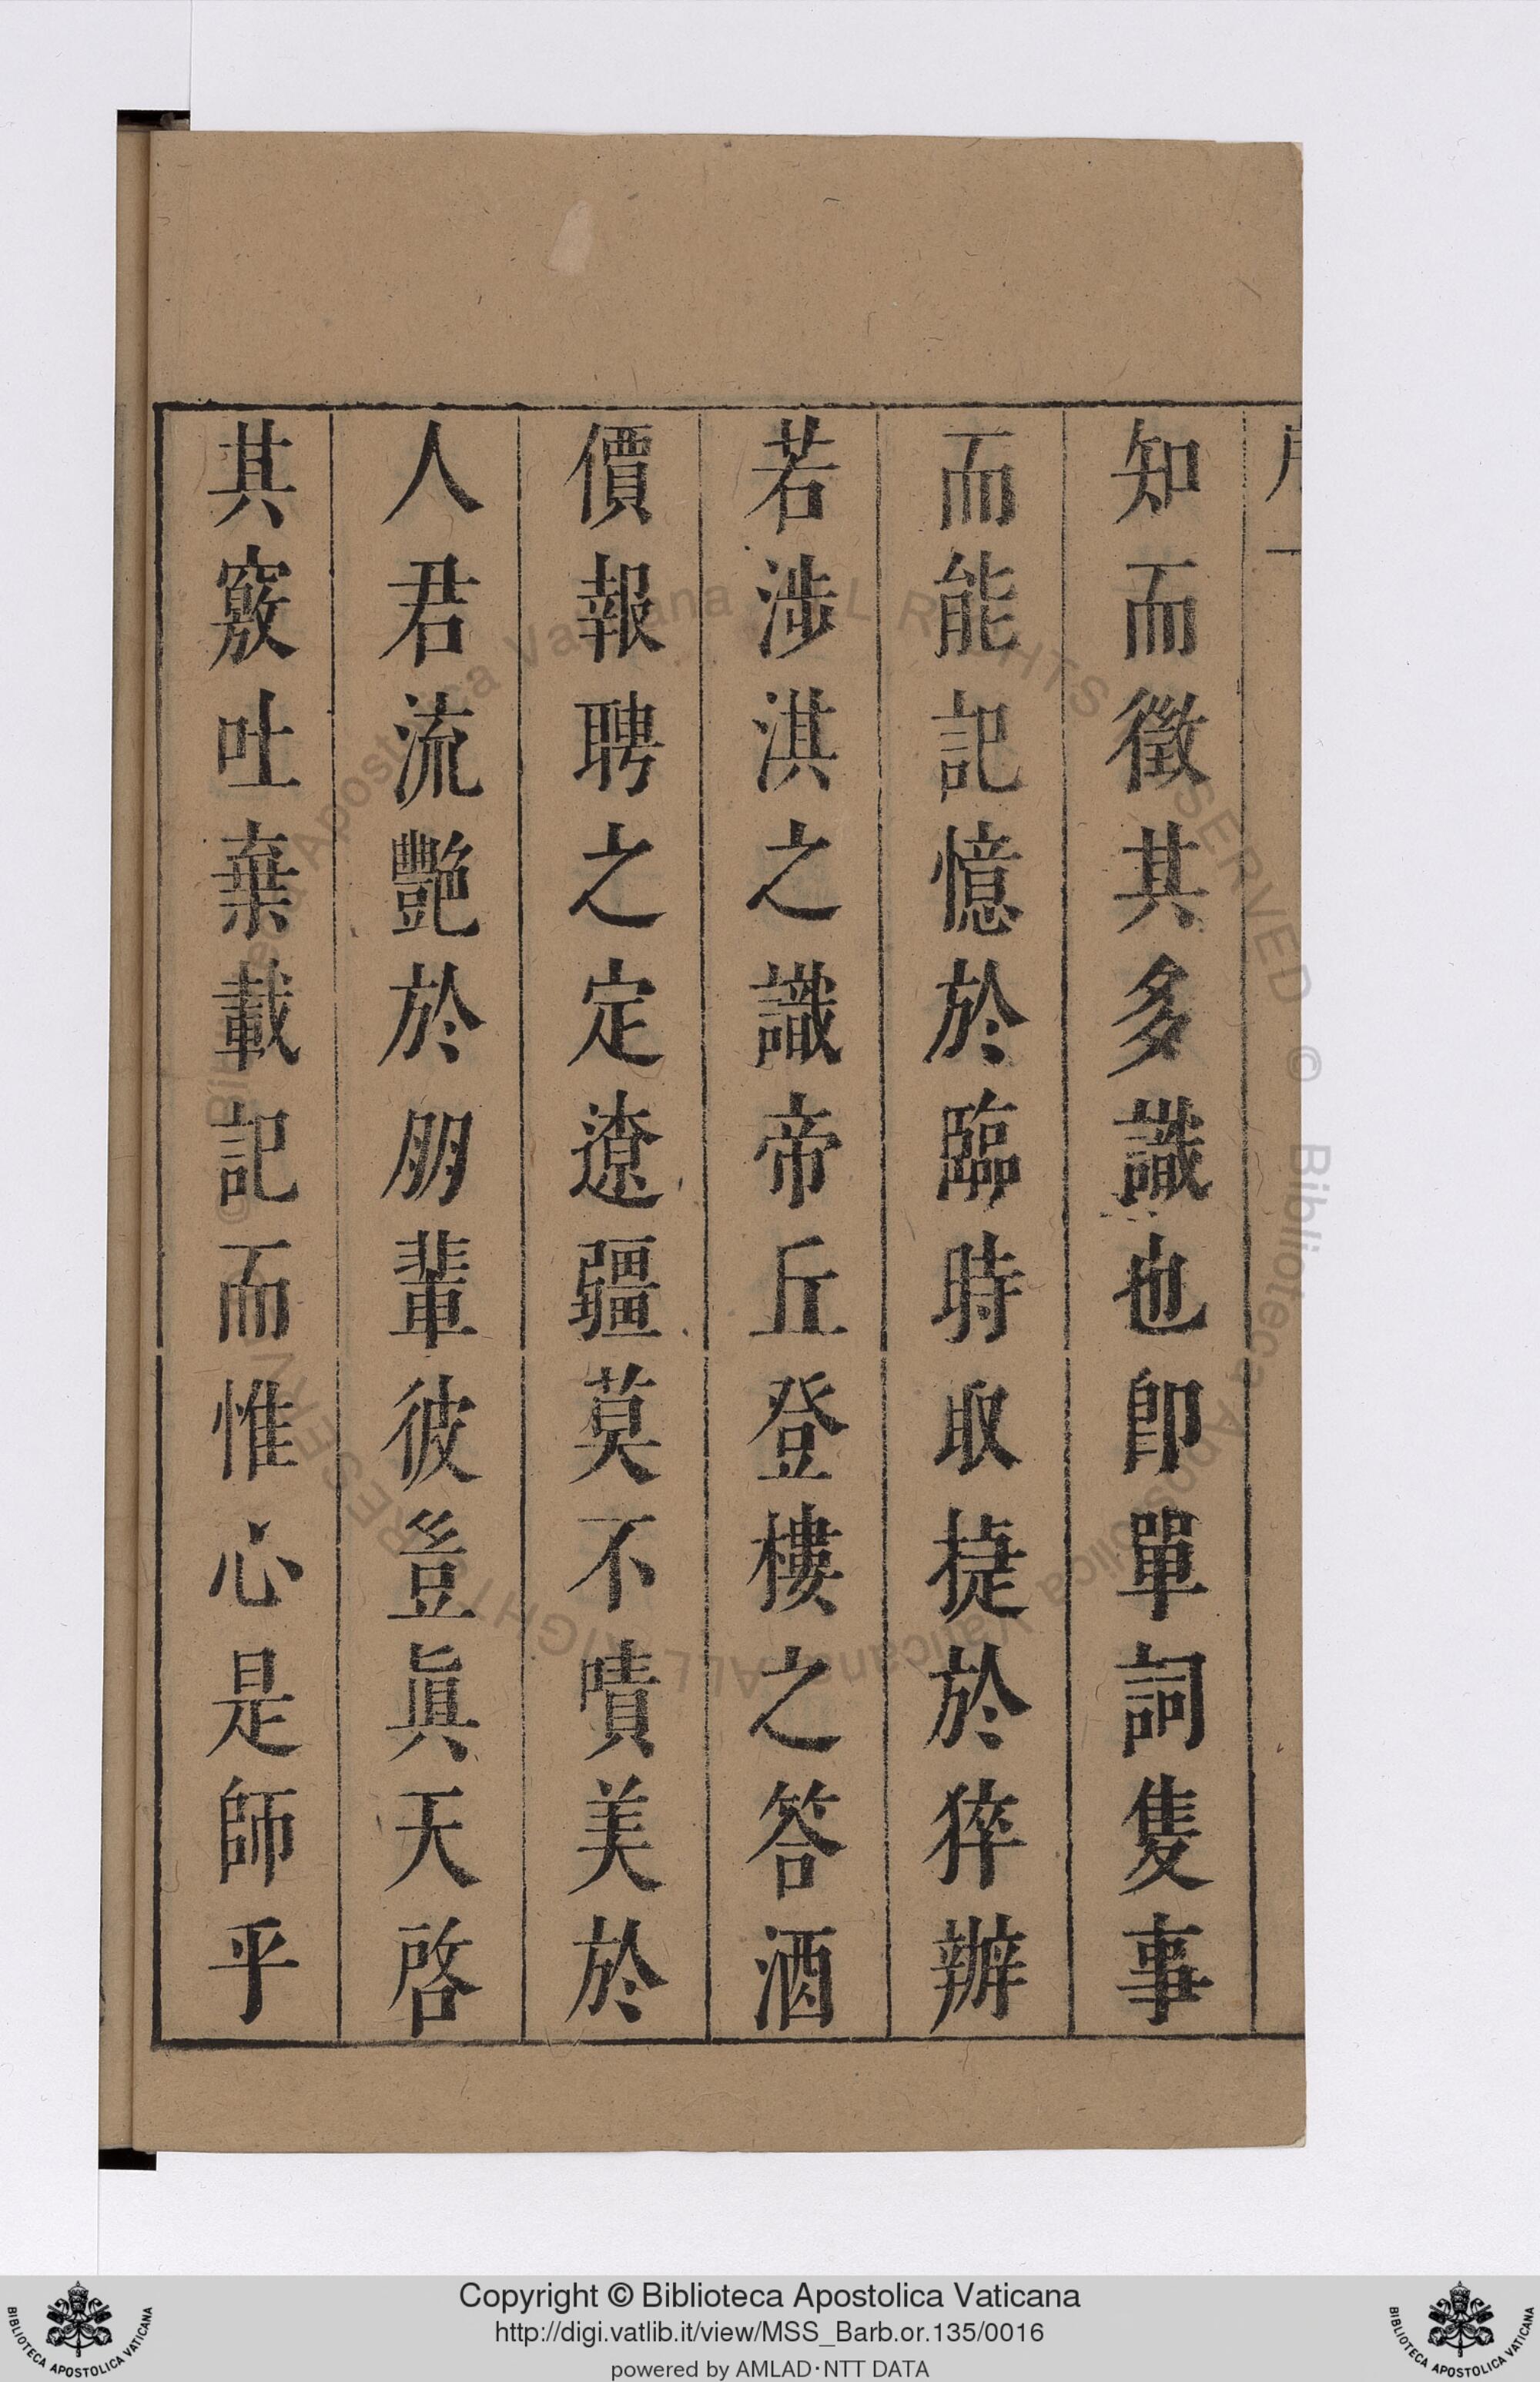 知而徵其多識也卽單詞隻事
而能記憶於臨時取捷於猝辦
若涉淇之識帝丘登樓之答酒
價報聘之定遼疆莫不嘖美於
人君流艷於朋輩彼豈眞天啓
其竅吐棄載記而惟心是師乎
Copyright © Biblioteca Apostolica Vaticana
http://digi.vatlib.it/view/MSS_Barb.or.135/0016
powered by AMLAD·NTT DATA
BIBLIOTECA APOSTOLICA VATICANA
BIBLIOTECA APOSTOLICA VATICANA
© Biblioteca Apostolica Vaticana ALL RIGHTS RESERVED
© Biblioteca Apostolica Vaticana ALL RIGHTS RESERVED